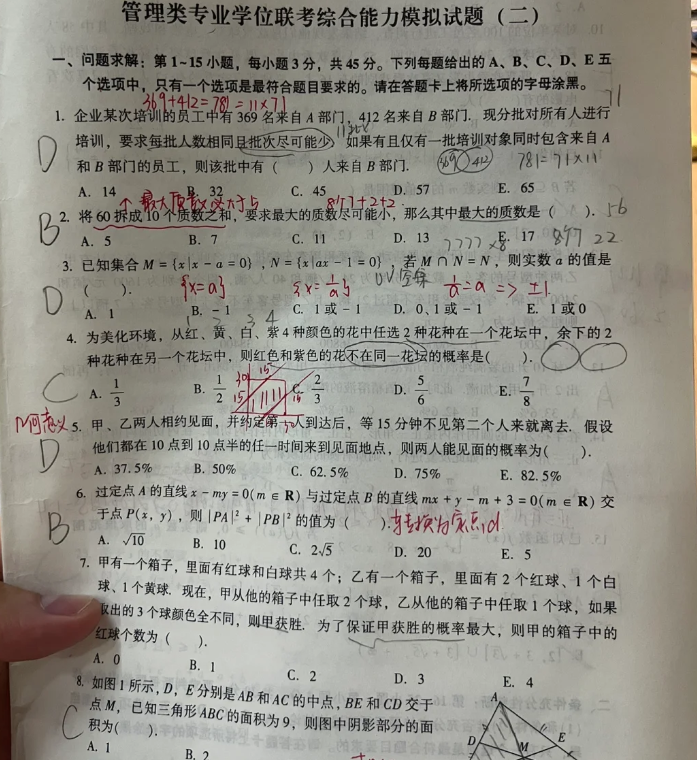 管理类专业学位联考综合能力模拟试题（二）
一、问题求解：第1~15小题，每小题3分，共45分。下列每题给出的A、B、C、D、E五
个选项中，只有一个选项是最符合题目要求的。请在答题卡上将所选项的字母涂黑。
369+412=781=11×71
71
1. 企业某次培训的员工中有369名来自A部门，412名来自B部门. 现分批对所有人进行
培训，要求每批人数相同且批次尽可能少. 如果有且仅有一批培训对象同时包含来自A
D
369 412
781=71×11
和B部门的员工，则该批中有（ ）人来自B部门.
A. 14 B. 32 C. 45 D. 57 E. 65
个最大质数必大于5
877+2+2
B
2. 将60拆成10个质数之和，要求最大的质数尽可能小，那么其中最大的质数是（ ）. 56
A. 5 B. 7 C. 11 D. 13 E. 17
7777×8
897 22
3. 已知集合M={x|x-a=0}，N={x|ax-1=0}，若M∩N=N，则实数a的值是
D
（ ）.
{x=a}
{x=1/a}
1/a=a => ±1
A. 1 B. -1 C. 1或-1 D. 0、1或-1 E. 1或0
1 2 3 4
4. 为美化环境，从红、黄、白、紫4种颜色的花中任选2种花种在一个花坛中，余下的2
种花种在另一个花坛中，则红色和紫色的花不在同一花坛的概率是（ ）.
C
A. 1/3 B. 1/2 C. 2/3 D. 5/6 E. 7/8
30 15
15 15
30
几何意义
5. 甲、乙两人相约见面，并约定第一人到达后，等15分钟不见第二个人来就离去. 假设
D
他们都在10点到10点半的任一时间来到见面地点，则两人能见面的概率为（ ）.
A. 37.5% B. 50% C. 62.5% D. 75% E. 82.5%
6. 过定点A的直线x-my=0(m∈R)与过定点B的直线mx+y-m+3=0(m∈R)交
B
于点P(x，y)，则|PA|²+|PB|²的值为（ ）.
转换为定点d
A. √10 B. 10 C. 2√5 D. 20 E. 5
7. 甲有一个箱子，里面有红球和白球共4个；乙有一个箱子，里面有2个红球、1个白
球、1个黄球. 现在，甲从他的箱子中任取2个球，乙从他的箱子中任取1个球，如果
取出的3个球颜色全不同，则甲获胜. 为了保证甲获胜的概率最大，则甲的箱子中的
红球个数为（ ）.
A. 0 B. 1 C. 2 D. 3 E. 4
8. 如图1所示，D，E分别是AB和AC的中点，BE和CD交于
C
点M，已知三角形ABC的面积为9，则图中阴影部分的面
积为（ ）.
A. 1 B. 2
A
D
E
M